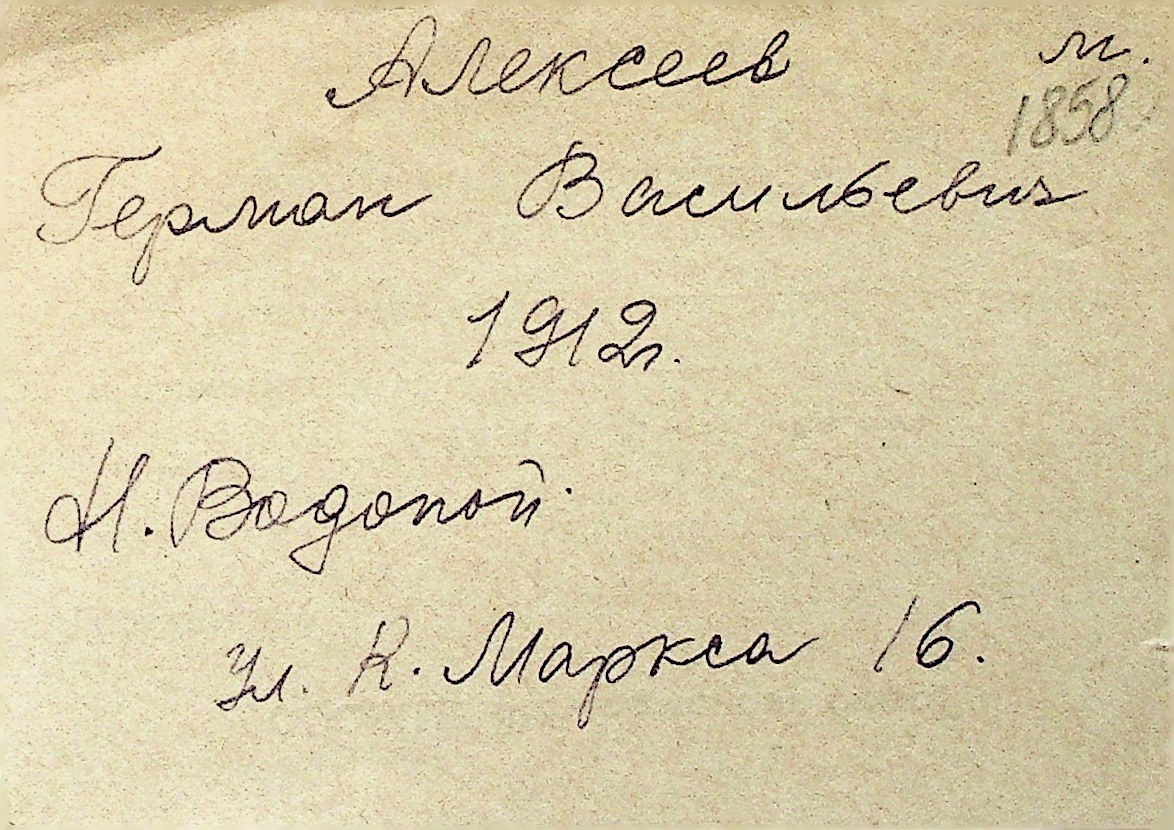 Алексеев м.
1858
Герман Васильевич
1912г.
Н. Водопой
Ул. К. Маркса 16.